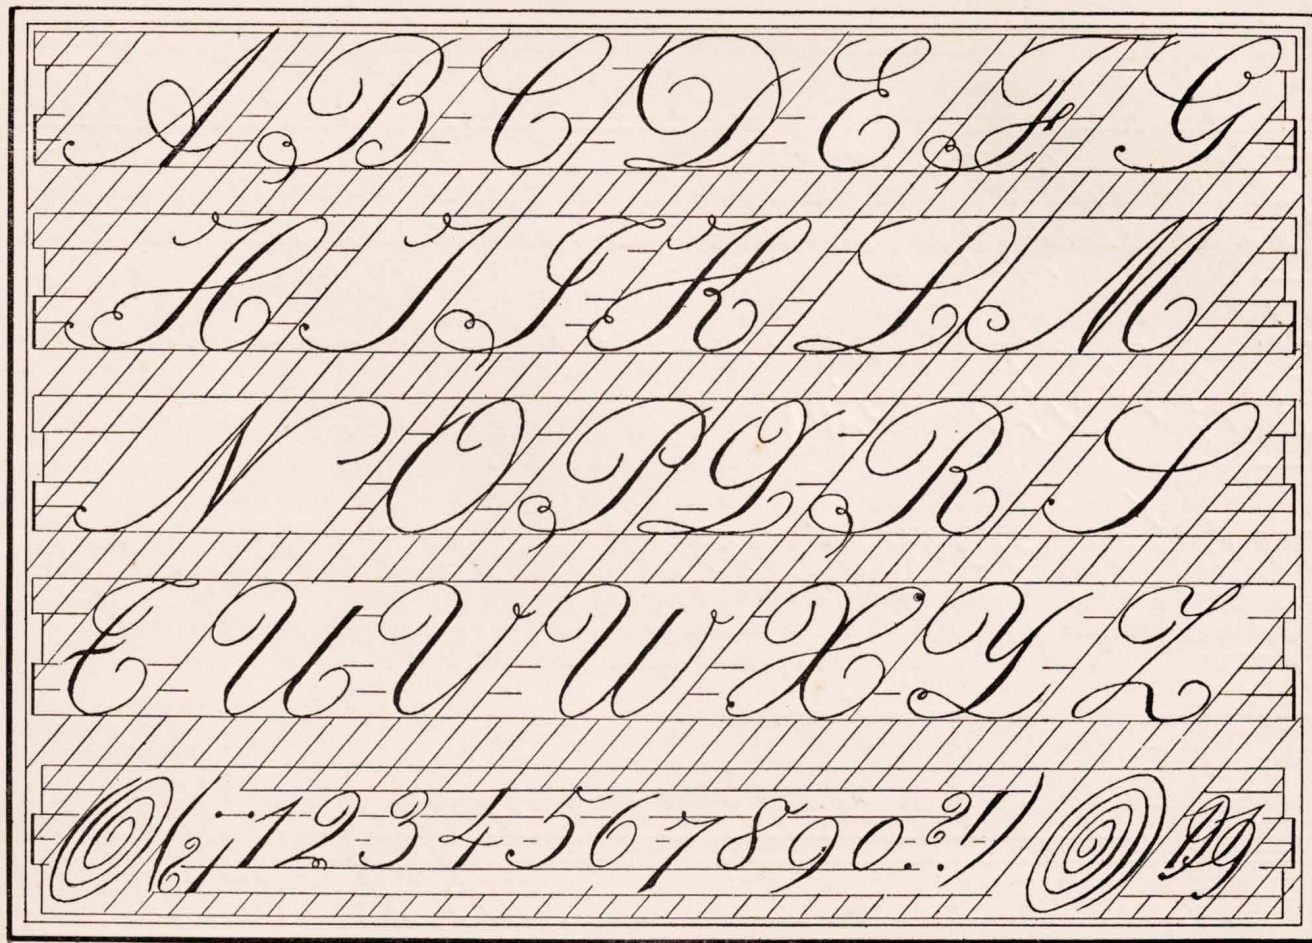 A B C D E F G
H I J K L M
N O P Q R S
T U V W X Y Z
1 2 3 4 5 6 7 8 9 0 . ? ! )